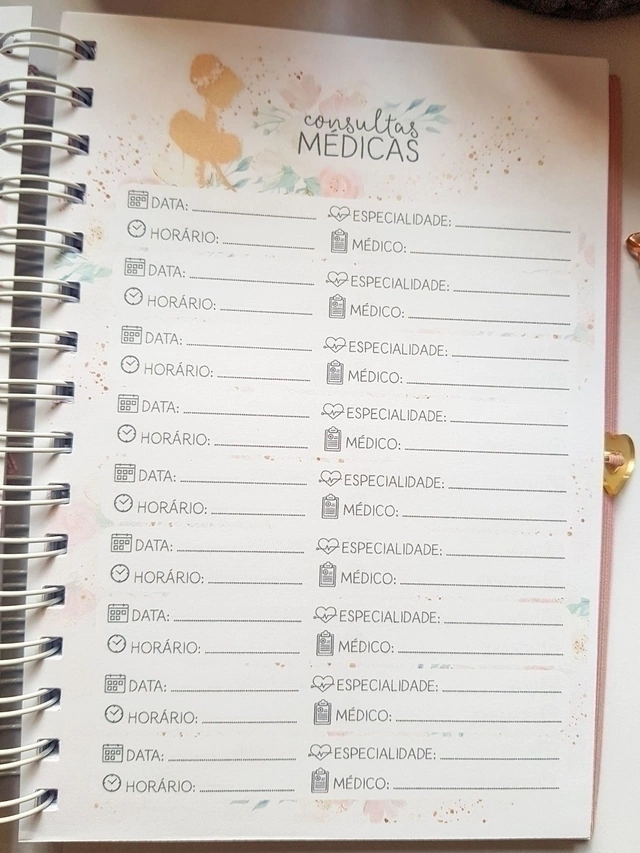 consultas
MÉDICAS
DATA: ESPECIALIDADE:
HORÁRIO: MÉDICO:
DATA: ESPECIALIDADE:
HORÁRIO: MÉDICO:
DATA: ESPECIALIDADE:
HORÁRIO: MÉDICO:
DATA: ESPECIALIDADE:
HORÁRIO: MÉDICO:
DATA: ESPECIALIDADE:
HORÁRIO: MÉDICO:
DATA: ESPECIALIDADE:
HORÁRIO: MÉDICO:
DATA: ESPECIALIDADE:
HORÁRIO: MÉDICO:
DATA: ESPECIALIDADE:
HORÁRIO: MÉDICO:
DATA: ESPECIALIDADE:
HORÁRIO: MÉDICO: